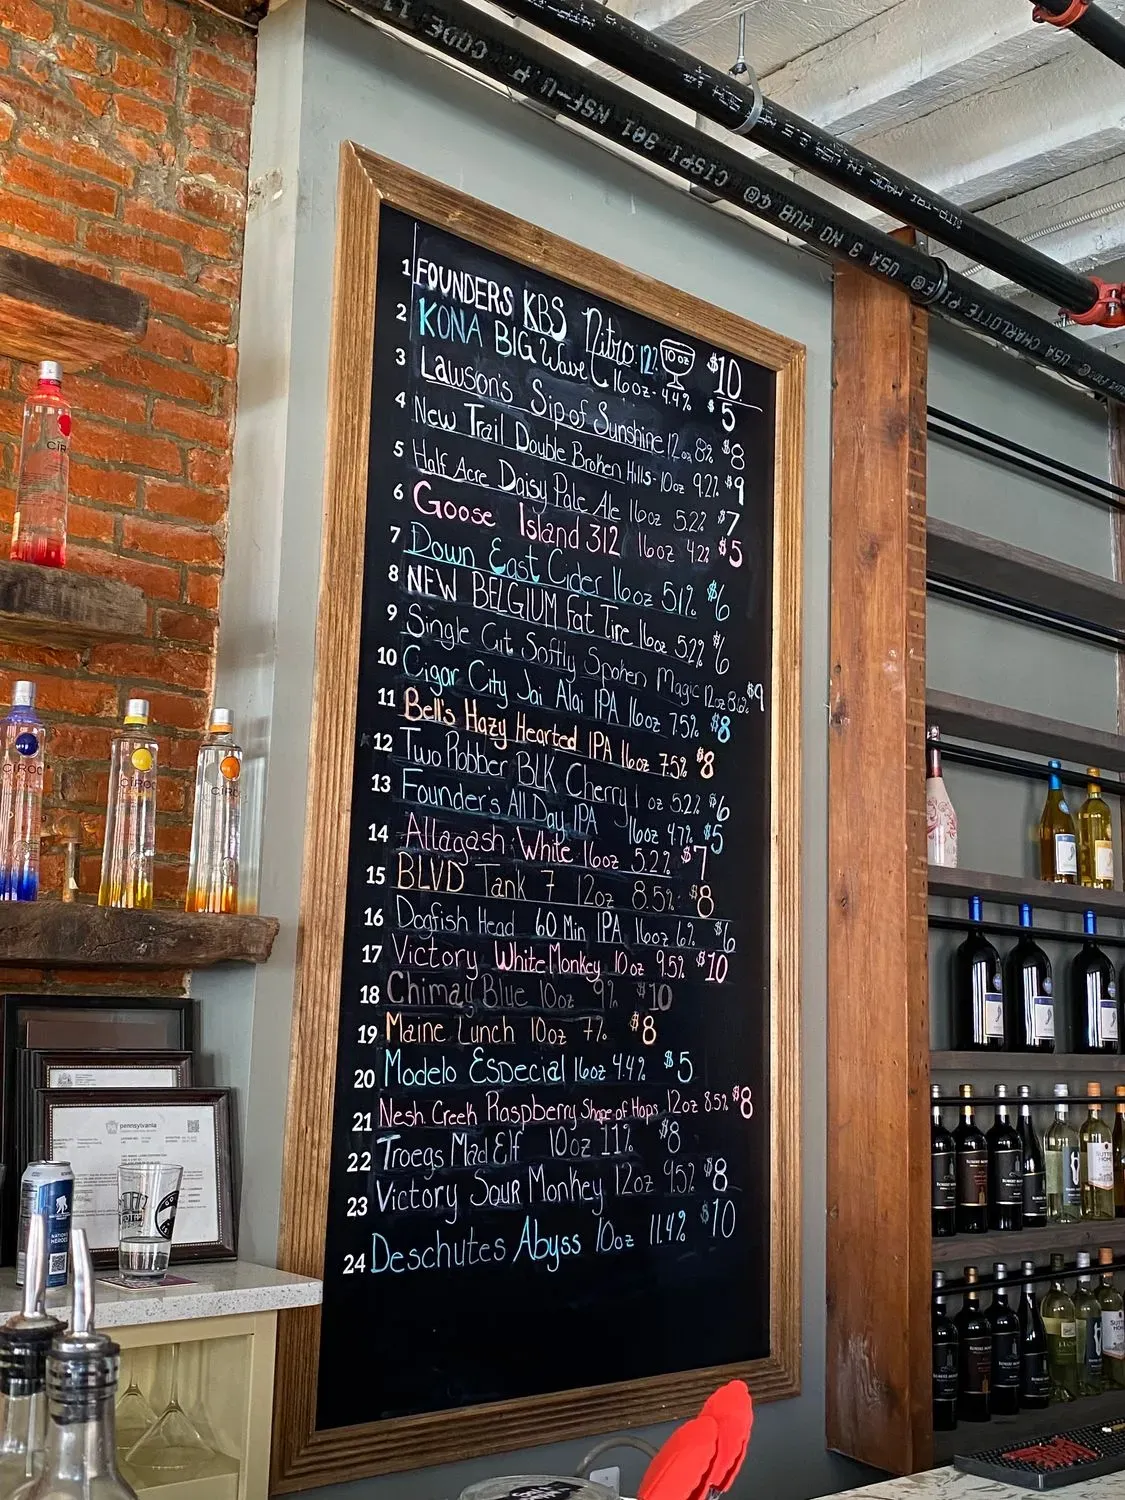 CODE 11
NSF-U.P.
CISPI-301
NO HUB
USA 3
CHARLOTTE PIPE
USA
MADE IN USA
1 FOUNDERS KBS Nitro 12% 10oz $10
2 KONA BIG Wave 16oz - 4.4% $5
3 Lawson's Sip of Sunshine 12oz 8% $8
4 New Trail Double Broken Hills - 10oz 9.2% $9
5 Half Acre Daisy Pale Ale 16oz 5.2% $7
6 Goose Island 312 16oz 4.2% $5
7 Down East Cider 16oz 5.1% $6
8 NEW BELGIUM Fat Tire 16oz 5.2% $6
9 Single Cut Softly Spoken Magic 12oz 8.6% $9
10 Cigar City Jai Alai IPA 16oz 7.5% $8
11 Bell's Hazy Hearted IPA 16oz 7.5% $8
12 Two Robber BLK Cherry 1 oz 5.2% $6
13 Founder's All Day IPA 16oz 4.7% $5
14 Allagash White 16oz 5.2% $7
15 BLVD Tank 7 12oz 8.5% $8
16 Dogfish Head 60 Min IPA 16oz 6% $6
17 Victory White Monkey 10oz 9.5% $10
18 Chimay Blue 10oz 9% $10
19 Maine Lunch 10oz 7% $8
20 Modelo Especial 16oz 4.4% $5
21 Nesh. Creek Raspberry Shape of Hops 12oz 8.5% $8
22 Troegs Mad Elf 10oz 11% $8
23 Victory Sour Monkey 12oz 9.5% $8
24 Deschutes Abyss 10oz 11.4% $10
CÎROC
CÎROC
CÎROC
pennsylvania